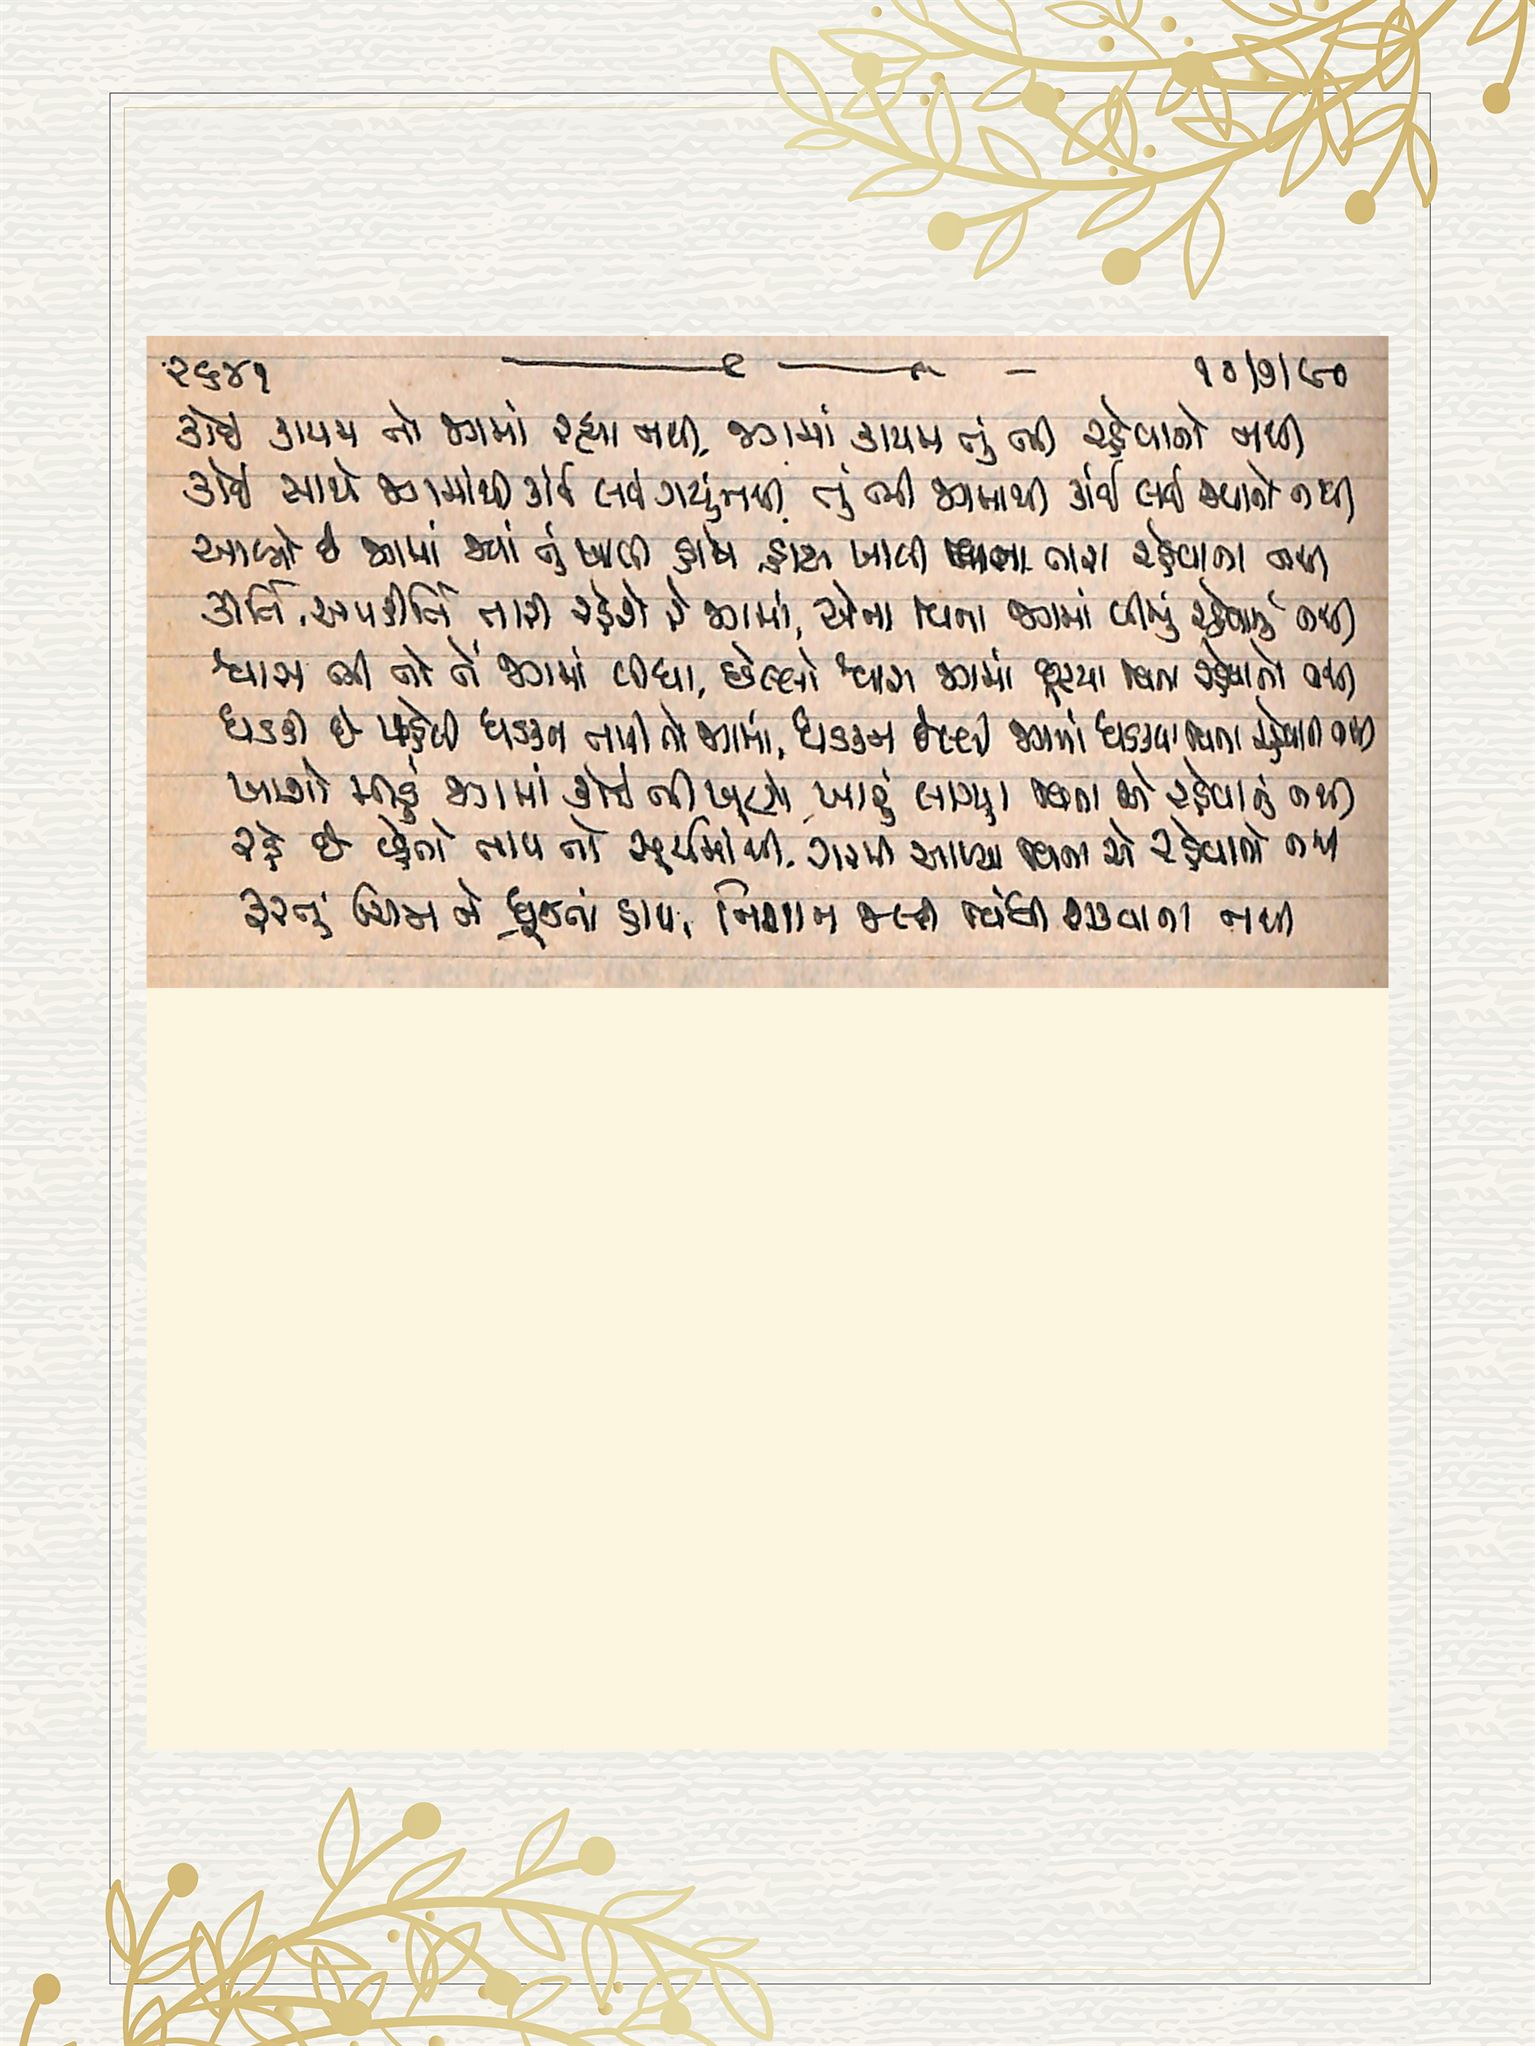 ૨૬૪૧ ૧૦/૭/૯૦
કોઈ કાયમ તો જગમાં રહ્યા નથી, જગમાં કાયમ તું ભી રહેવાનો નથી
કોઈ સાથે જગમાંથી કાંઈ લઈ ગયું નથી, તું ભી જગમાથી કાંઈ લઈ જવાનો નથી
આવ્યો છે જગમાં જ્યાં તું ખાલી હાથે, હાથ ખાલી વિના તારા રહેવાના નથી
કીર્તિ, અપકીર્તિ તારી રહેશે રે જગમાં, એના વિના જગમાં બીજું રહેવાનું નથી
શ્વાસ ભી તો તેં જગમાં લીધા, છેલ્લો શ્વાસ જગમાં છૂટયા વિના રહેવાનો નથી
ધડકી છે પહેલી ધડકન તારી તો જગમાં, ધડકન છેલ્લી જગમાં ધડકવા વિના રહેવાની નથી
ખાશો મીઠું જગમાં કોઈ ભી ખૂણે, ખારું લાગ્યા વિના એ રહેવાનું નથી
રહે છે વ્હેતો તાપ તો સૂર્યમાંથી, ગરમી આપ્યા વિના એ રહેવાનો નથી
ફરતું ચિત્ત ને ધ્રૂજતાં હાથ, નિશાન જલદી વીંધી શકવાના નથી